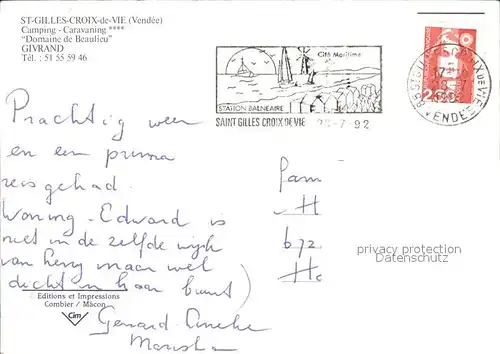 ST-GILLES-CROIX-de-VIE (Vendée)
Camping - Caravaning ****
"Domaine de Beaulieu"
GIVRAND
Tél. : 51 55 59 46
Cité Maritime
STATION BALNEAIRE
SAINT GILLES CROIX DE VIE 28-7 92
VENDEE
Prachtig weer
en een prima
reis gehad.
Woning Edward is
niet in de zelfde wijk
van herry maar wel
dicht in haar buurt)
Gerard
fam
H
privacy protection
Datenschutz
Editions et Impressions
Combier / Mâcon
Cim